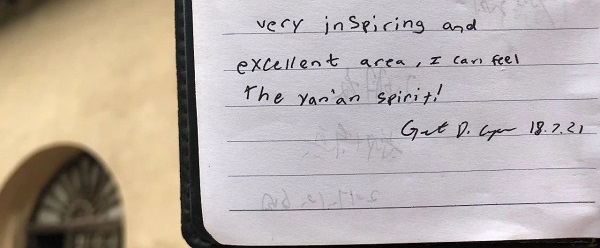 very inspiring and
excellent area, I can feel
The yan'an spirit!
D. 18.7.21